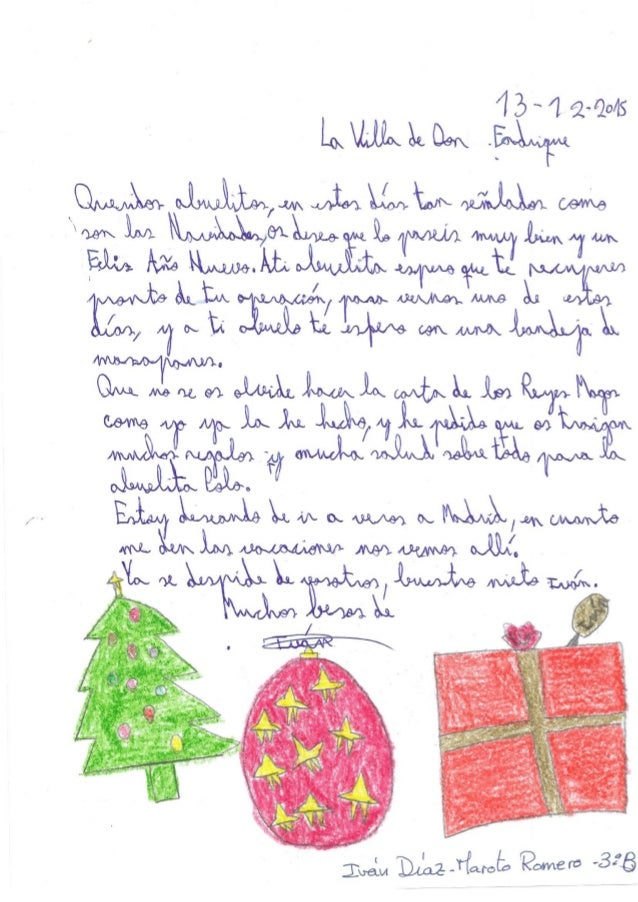 13-12-2015
La Villa de Don Fadrique
Queridos abuelitos, en estos días tan señalados como
son las Navidades, os deseo que lo paseis muy bien y un
Feliz Año Nuevo. A ti abuelita espero que te recuperes
pronto de tu operación, para vernos uno de estos
días, y a ti abuelo te espero con una bandeja de
mazapanes.
Que no se os olvide hacer la carta de los Reyes Magos
como yo ya la he hecho, y he pedido que os traigan
muchos regalos y mucha salud sobre todo para la
abuelita Lolo.
Estoy deseando de ir a veros a Madrid, en cuanto
me den las vacaciones nos vemos allí.
Ya se despide de vosotros, buestro nieto Iván.
Muchos besos de
Iván Díaz-Maroto Romero -3ºB